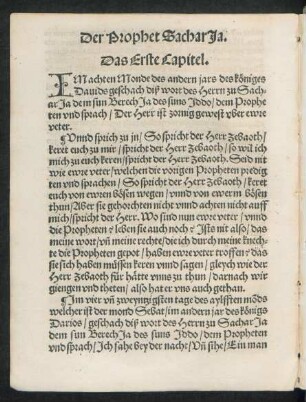 Der Prophet SacharJa.
Das Erste Capitel.
IM achten Monde des andern jars des königes
Dauids geschach diß wort des Herrn zu Sach-
arJa dem sun BerechJa des suns Iddo / dem Prophe
ten vnd sprach / Der Herr ist zornig gewest vber ewre
veter.
¶Vnnd sprich zu jn / So spricht der Herr Zebaoth /
keret euch zu mir / spricht der Herr Zebaoth / so wil ich
mich zu euch keren / spricht der Herr Zebaoth. Seid nit
wie ewre veter / welchen die vorigen Propheten predig
ten vnd sprachen / So spricht der Herr Zebaoth / keret
euch von ewren bösen wegen / vnnd von ewerm bösen
thun / Aber sie gehorchten nicht vnnd achten nicht auff
mich / spricht der Herr. Wo sind nun ewre veter / vnnd
die Propheten? leben sie auch noch? Ists nit also / das
meine wort / vñ meine rechte / die ich durch meine knech-
te die Propheten gepot / haben ewre veter troffen? das
sie sich haben müssen keren vnnd sagen / gleych wie der
Herr Zebaoth für hätte vnns zu thun / darnach wir
giengen vnd theten / also hat er vns auch gethan.
¶Im vier vñ zweyntzigsten tage des aylfften mõds
welcher ist der mond Sebat / im andern jar des königs
Darios / geschach diß wort des Herrn zu SacharJa
dem sun BerechJa des suns Iddo / dem Propheten
vnd sprach / Ich sahe bey der nacht / Vñ sihe / Ein man